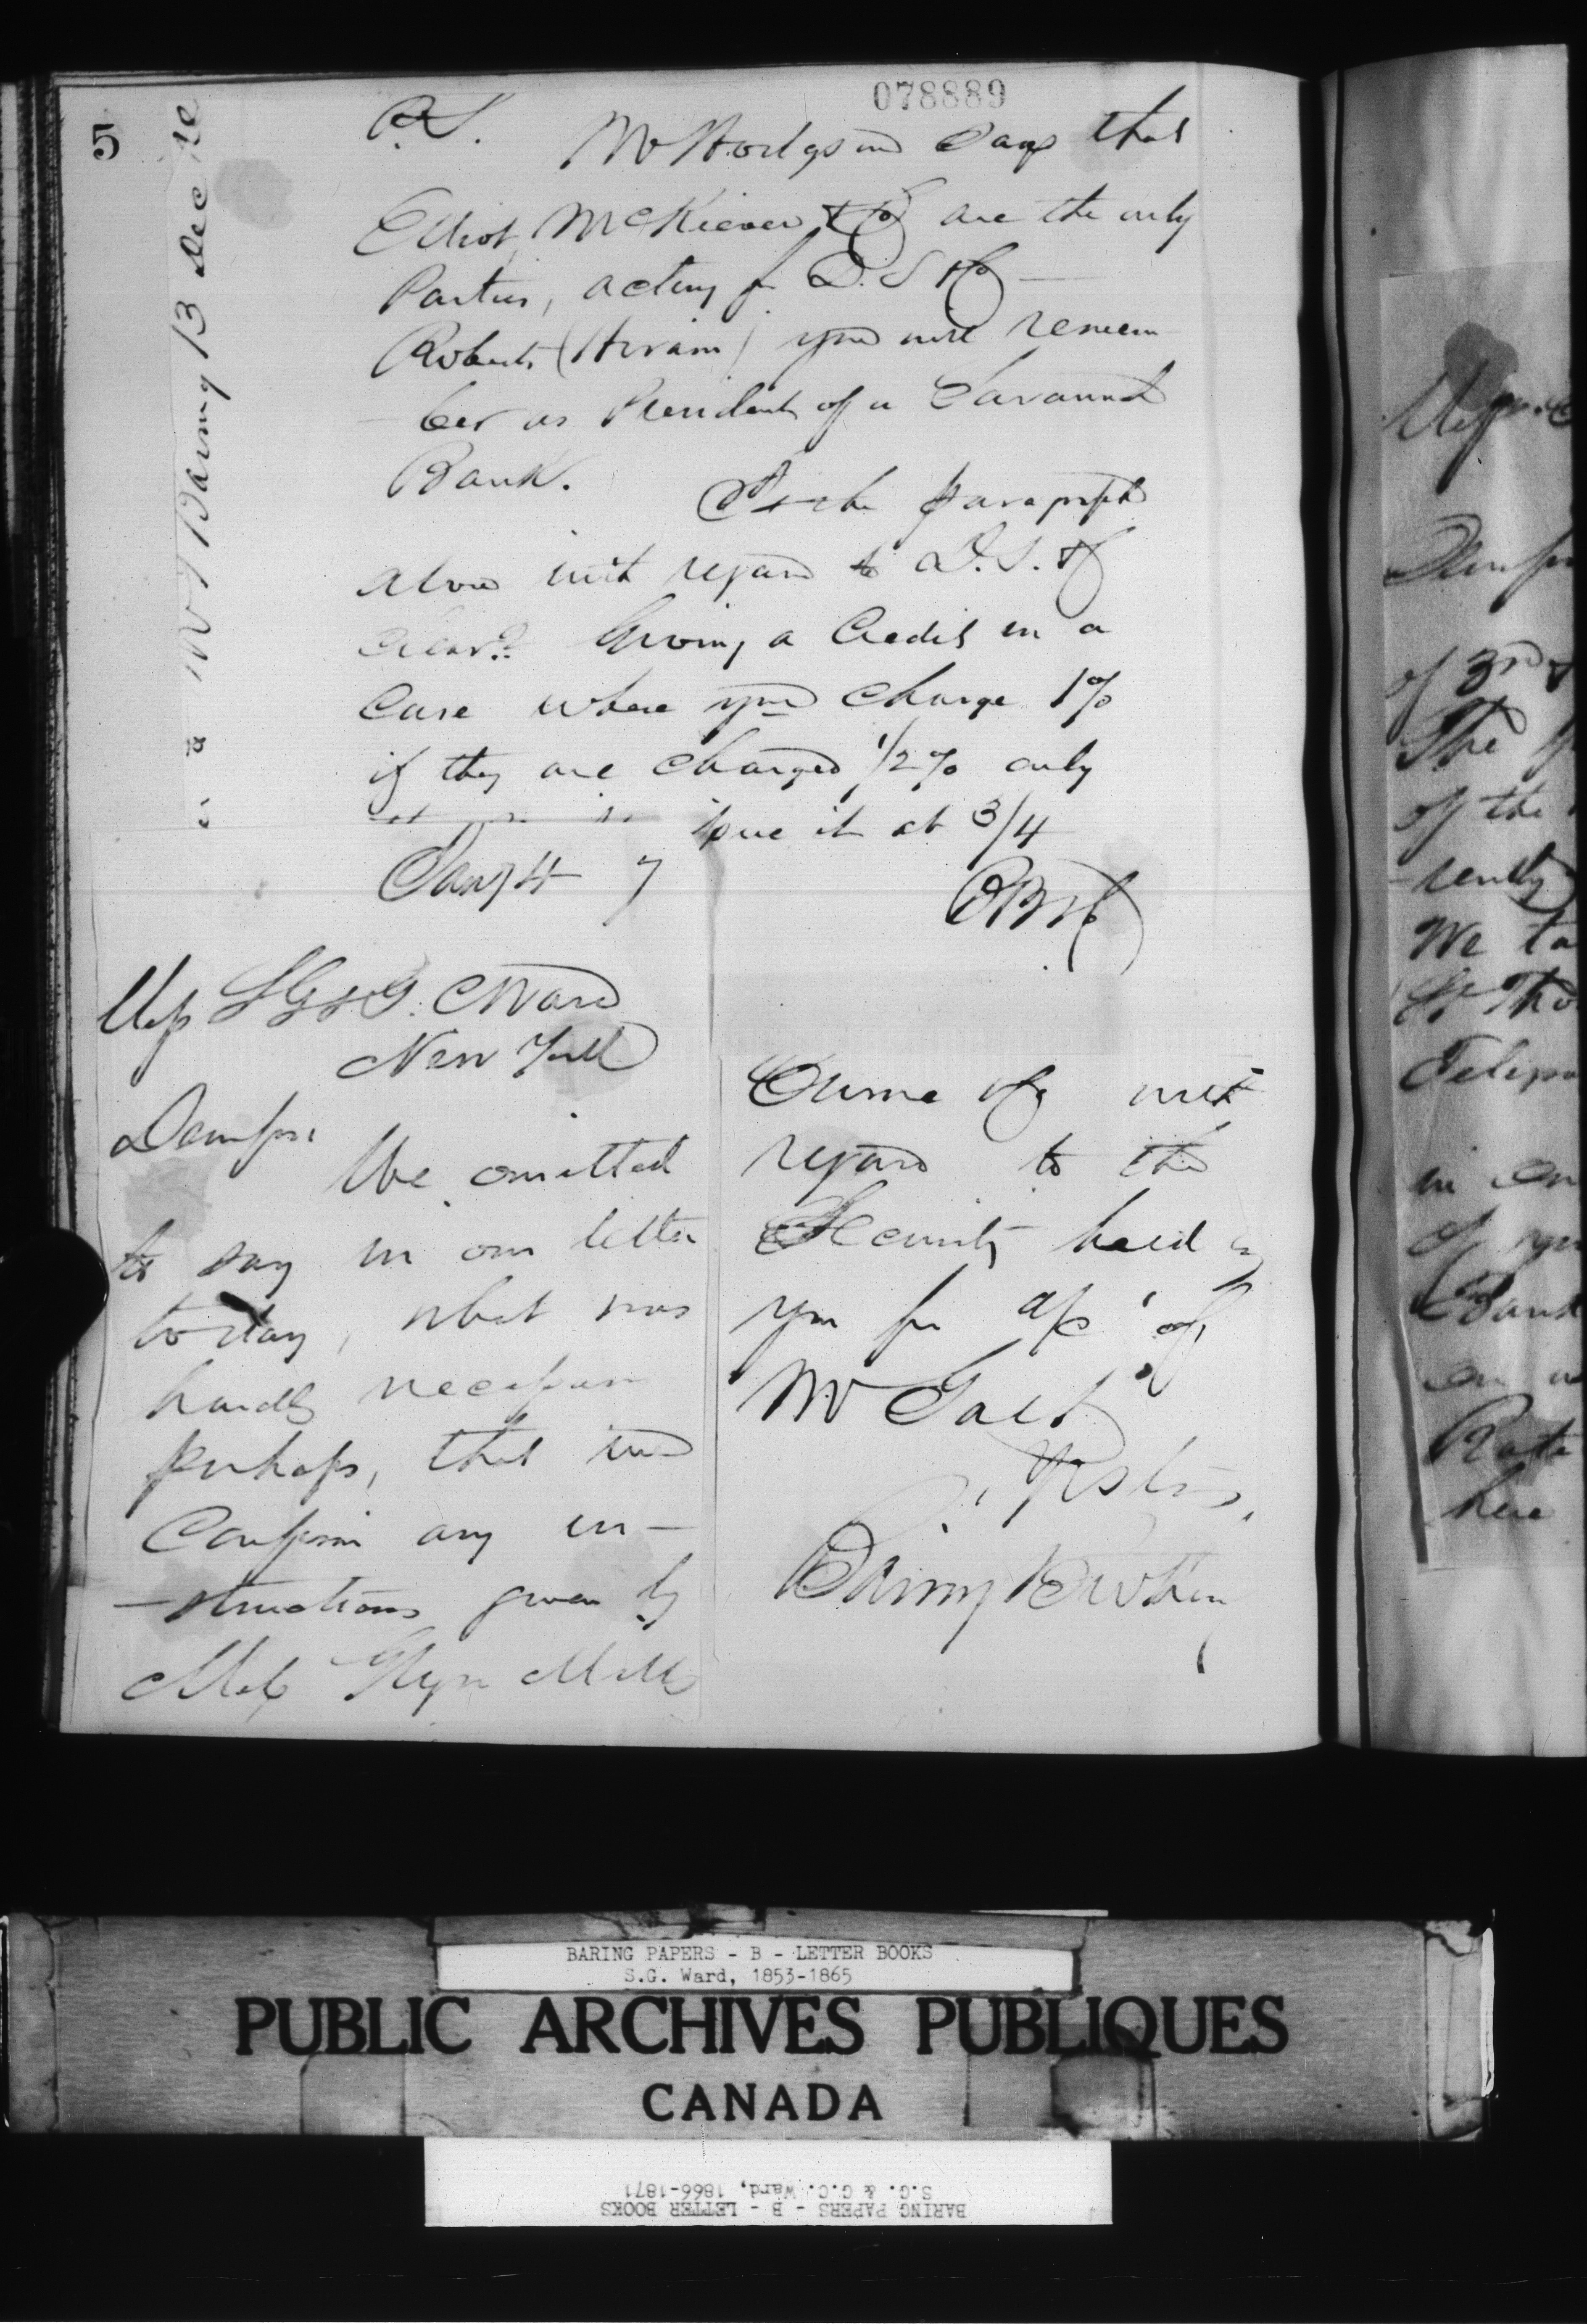 078889
5
Mr T Baring 13 Dec
P.S. Mr Hodgson says that
Elliot McKiever & Co are the only
Parties, acting for D. S & Co —
Roberts (Hiram) you will remem
- ber as President of a Savannah
Bank. Is the paragraph
above with regard to D. S. & Co
clear? Giving a Credit in a
Case where you charge 1%
if they are charged 1/2% only
issue it at 3/4
Jany 4 7
BB & Co
Mess S G & G. C Ward
New York
Dear Sirs
We omitted
to say in our letter
to day, what was
hardly necessary
perhaps, that we
Confirm any in-
-structions given by
Mess Glyn Mills
Currie & Co with
regard to the
Security held by
you for a/c of
Mr Galt
Yrs Try
Baring Brothers
of 3rd &
The
of the
rently
We ta
St Tho
in
of you
Bank
on
Rate
here
BARING PAPERS - B - LETTER BOOKS
S.G. Ward, 1853-1865
PUBLIC ARCHIVES PUBLIQUES
CANADA
BARING PAPERS - B - LETTER BOOKS
S.G. & G.C. Ward, 1866-1871